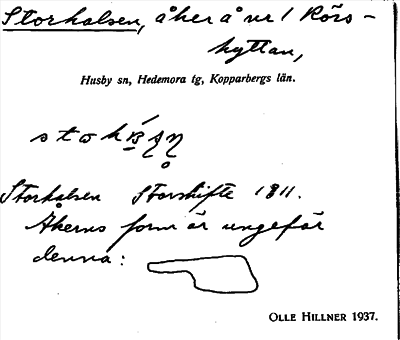 Storhalsen, åker å nr 1 Rörs-
hyttan,
Husby sn, Hedemora tg, Kopparbergs län.
Storhalsen Storskifte 1811.
Åkerns form är ungefär
denna:
OLLE HILLNER 1937.